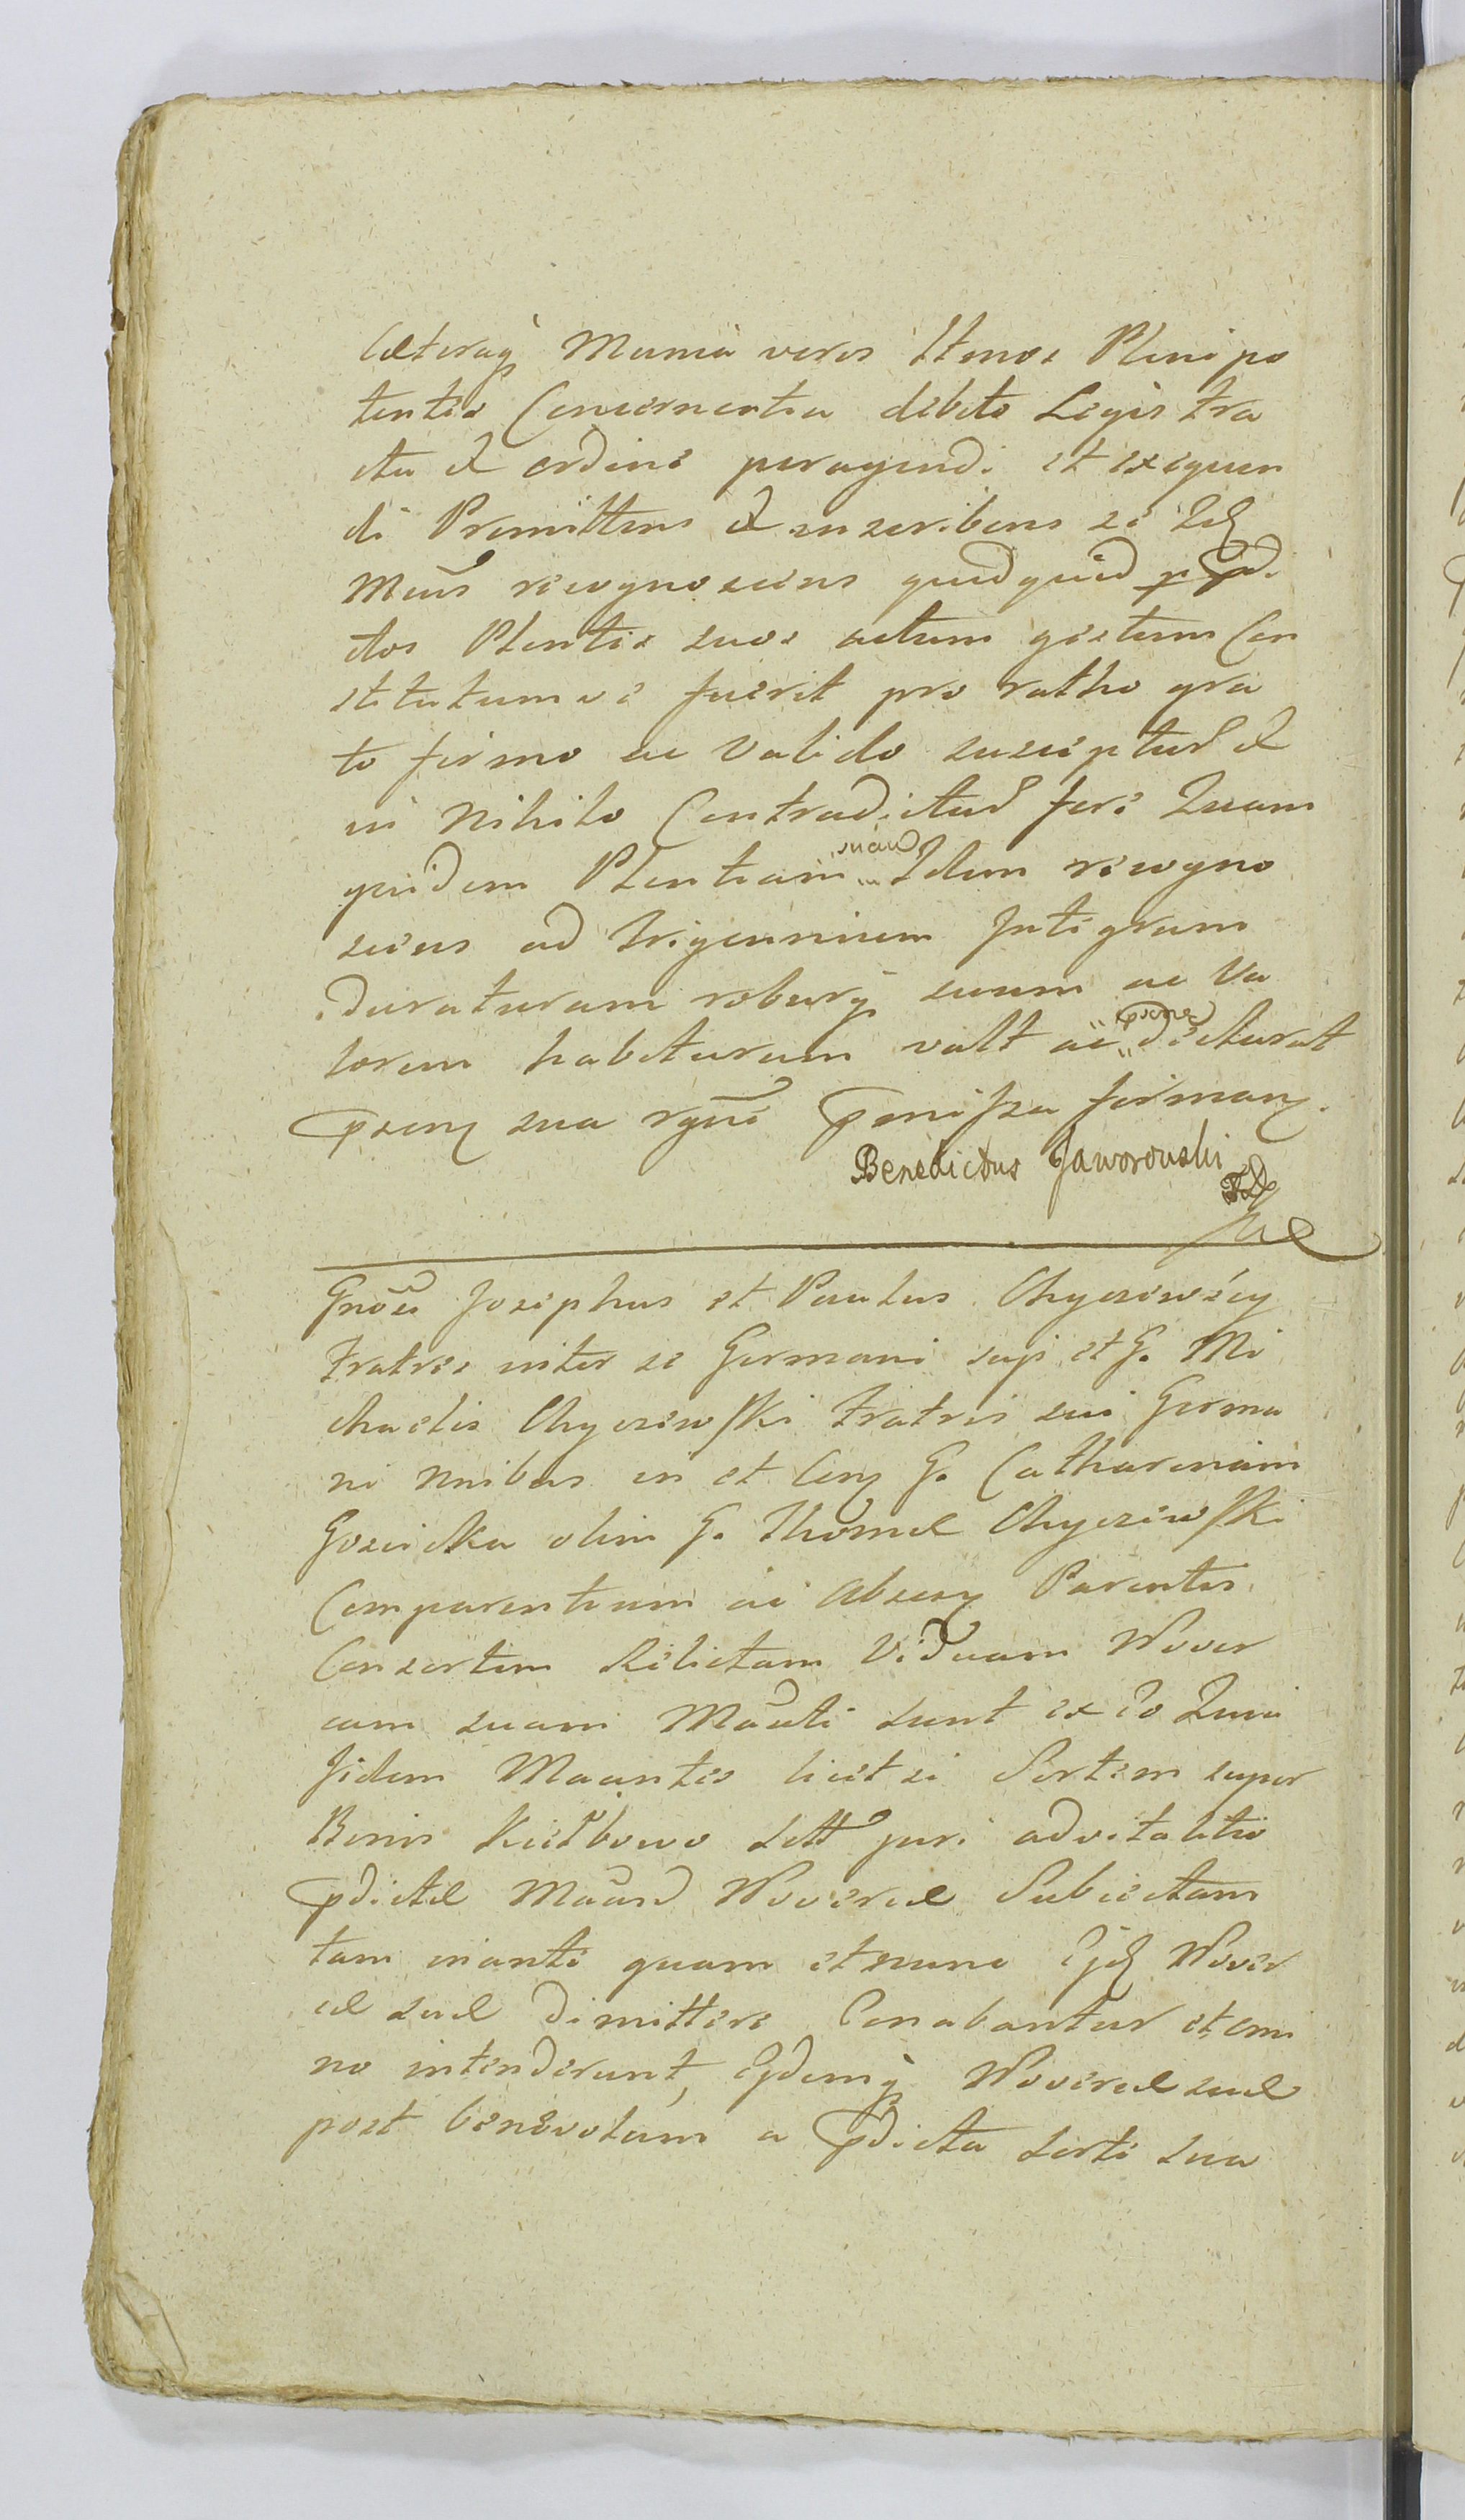 Cæteraq Munia veros Itmos Plenipo
tentes Concernentia debito Legis tra
ctu et ordine peragendi et exequen
di Promittens et inscribens se Idq
Mcus recognoscens quidquid p pd.
ctos Plentes suos actum gestum Con
stitutumve fuerit pro ratho gra
to firmo ac valido susciptur et
in Nihilo Contradictur fore Quam
quidem Plentiam suam Idem recogno
scens ad trigennium Integrum
duraturam roburq suum ac Va
lorem habiturum vult ac dècturat
psenq sua rgni pmissa firmanq.
Benedictus Jaworowski

Gnosi Josephus et Paulus Chyczewscy
Fratres inter se Germani suo et G. Mi
chaelis Chyczewski Fratris sui Germa
ni nnibus in et Conq G. Catharinam
Gosicka olim G. Thomæ Chyczewski
Comparentium ac Absenq Parentis
Consortem Relictam Viduam Nover
cam suam Maãti sunt ex eo Quia
Iidem Maantes licet ei Sortem super
Bonis Kiełbowo sett juri advitalitio
pdictæ Maand Novercæ Subiectam
tam inante quam et nunc Ejq Nover
cæ suæ dimittere Conabantur et omi
no intenderunt, Ejdemq Novercæ suæ
post benevolam a pdicta sorte sua